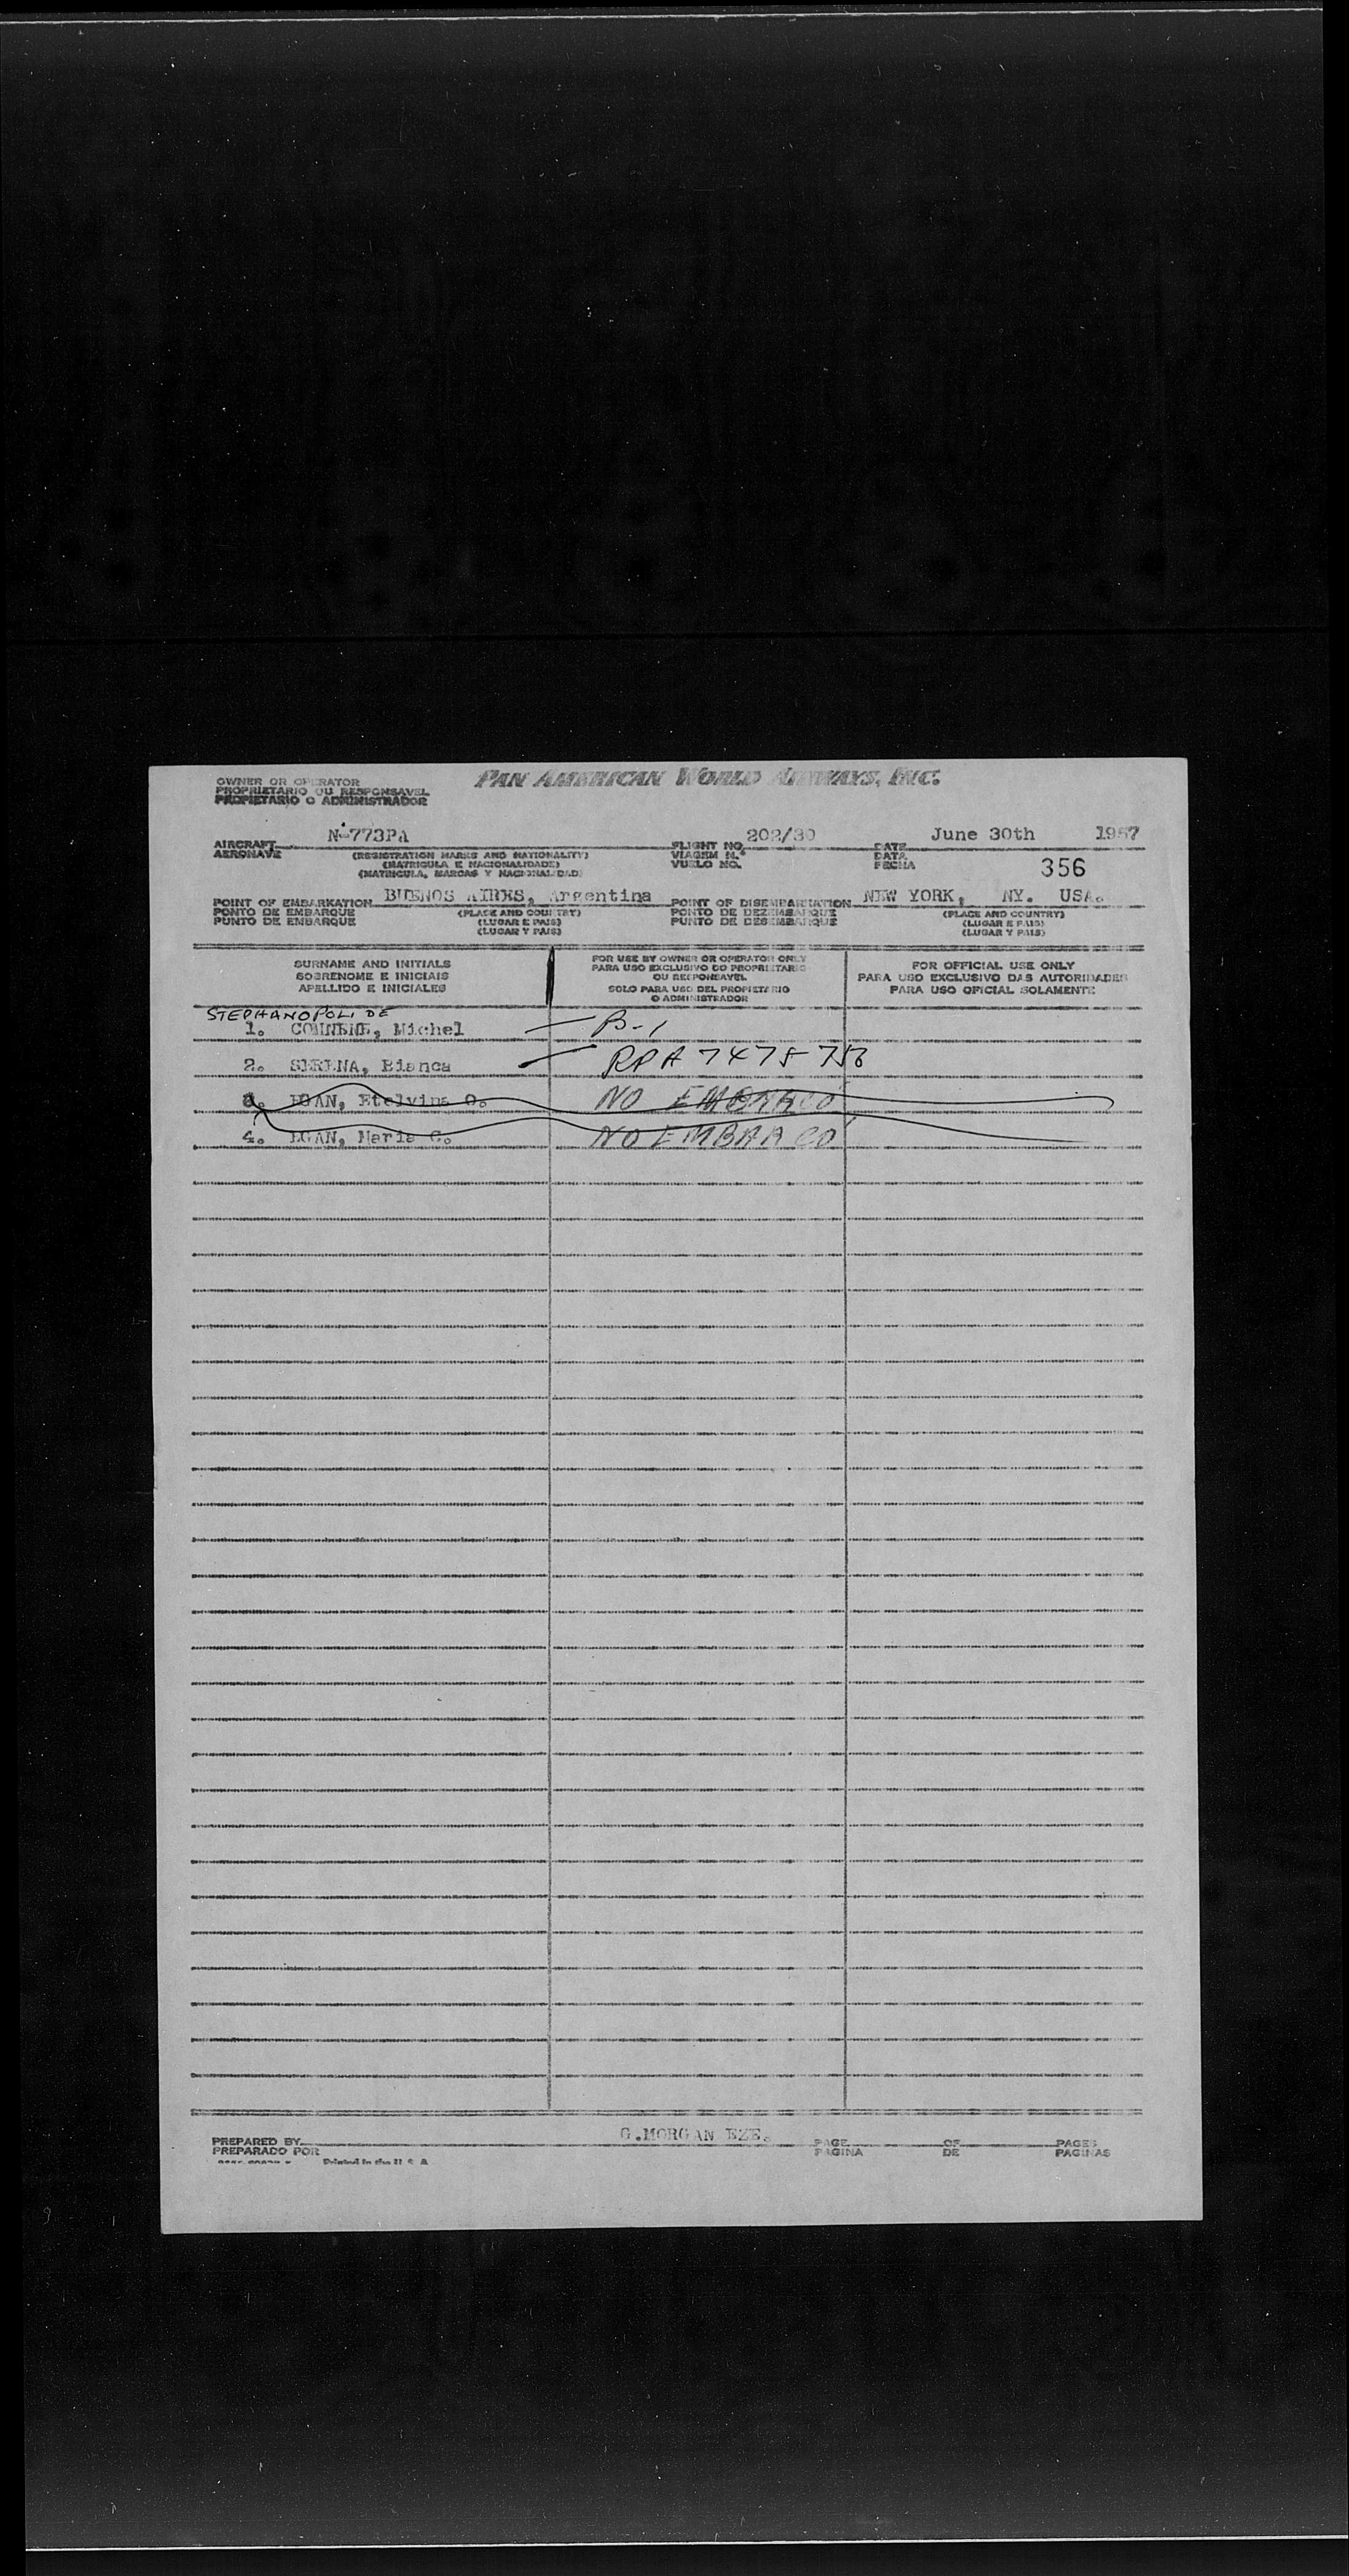 OWNER OR OPERATOR
PROPRIETARIO OU RESPONSAVEL
PROPIETARIO O ADMINISTRADOR
PAN AMERICAN WORLD AIRWAYS, INC.
AIRCRAFT N-773PA FLIGHT NO. 202/30 DATE June 30th 1957
AERONAVE (REGISTRATION MARKS AND NATIONALITY) VIAGEM N.° DATA
(MATRICULA E NACIONALIDADE) VUELO NO. FECHA 356
(MATRICULA, MARCAS Y NACIONALIDAD)
POINT OF EMBARKATION BUENOS AIRES, Argentina POINT OF DISEMBARKATION NEW YORK, NY. USA.
PONTO DE EMBARQUE (PLACE AND COUNTRY) PONTO DE DEZEMBARQUE (PLACE AND COUNTRY)
PUNTO DE EMBARQUE (LUGAR E PAIS) PUNTO DE DESEMBARQUE (LUGAR E PAIS)
(LUGAR Y PAIS) (LUGAR Y PAIS)
SURNAME AND INITIALS
SOBRENOME E INICIAIS
APELLIDO E INICIALES
FOR USE BY OWNER OR OPERATOR ONLY
PARA USO EXCLUSIVO DO PROPRIETARIO
OU RESPONSAVEL
SOLO PARA USO DEL PROPIETARIO
O ADMINISTRADOR
FOR OFFICIAL USE ONLY
PARA USO EXCLUSIVO DAS AUTORIDADES
PARA USO OFICIAL SOLAMENTE
STEPHANOPOLI DE
1. COMNENE, Michel B-1
2. SERENA, Bianca RPA 7475
3. EGAN, Etelvina O. NO EMBARCO
4. EGAN, Maria C. NO EMBARCO
G.MORGAN EZE.
PREPARED BY PAGE OF PAGES
PREPARADO POR PAGINA DE PAGINAS
Printed in the U. S. A.